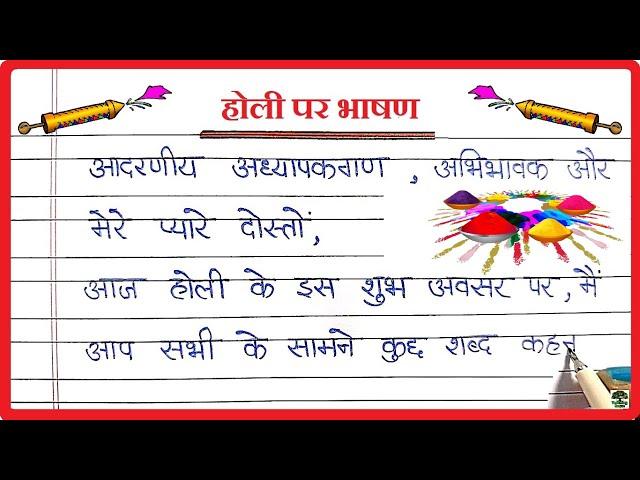 होली पर भाषण
आदरणीय अध्यापकगण , अभिभावक और
मेरे प्यारे दोस्तों,
आज होली के इस शुभ अवसर पर, मैं
आप सभी के सामने कुछ शब्द कहन